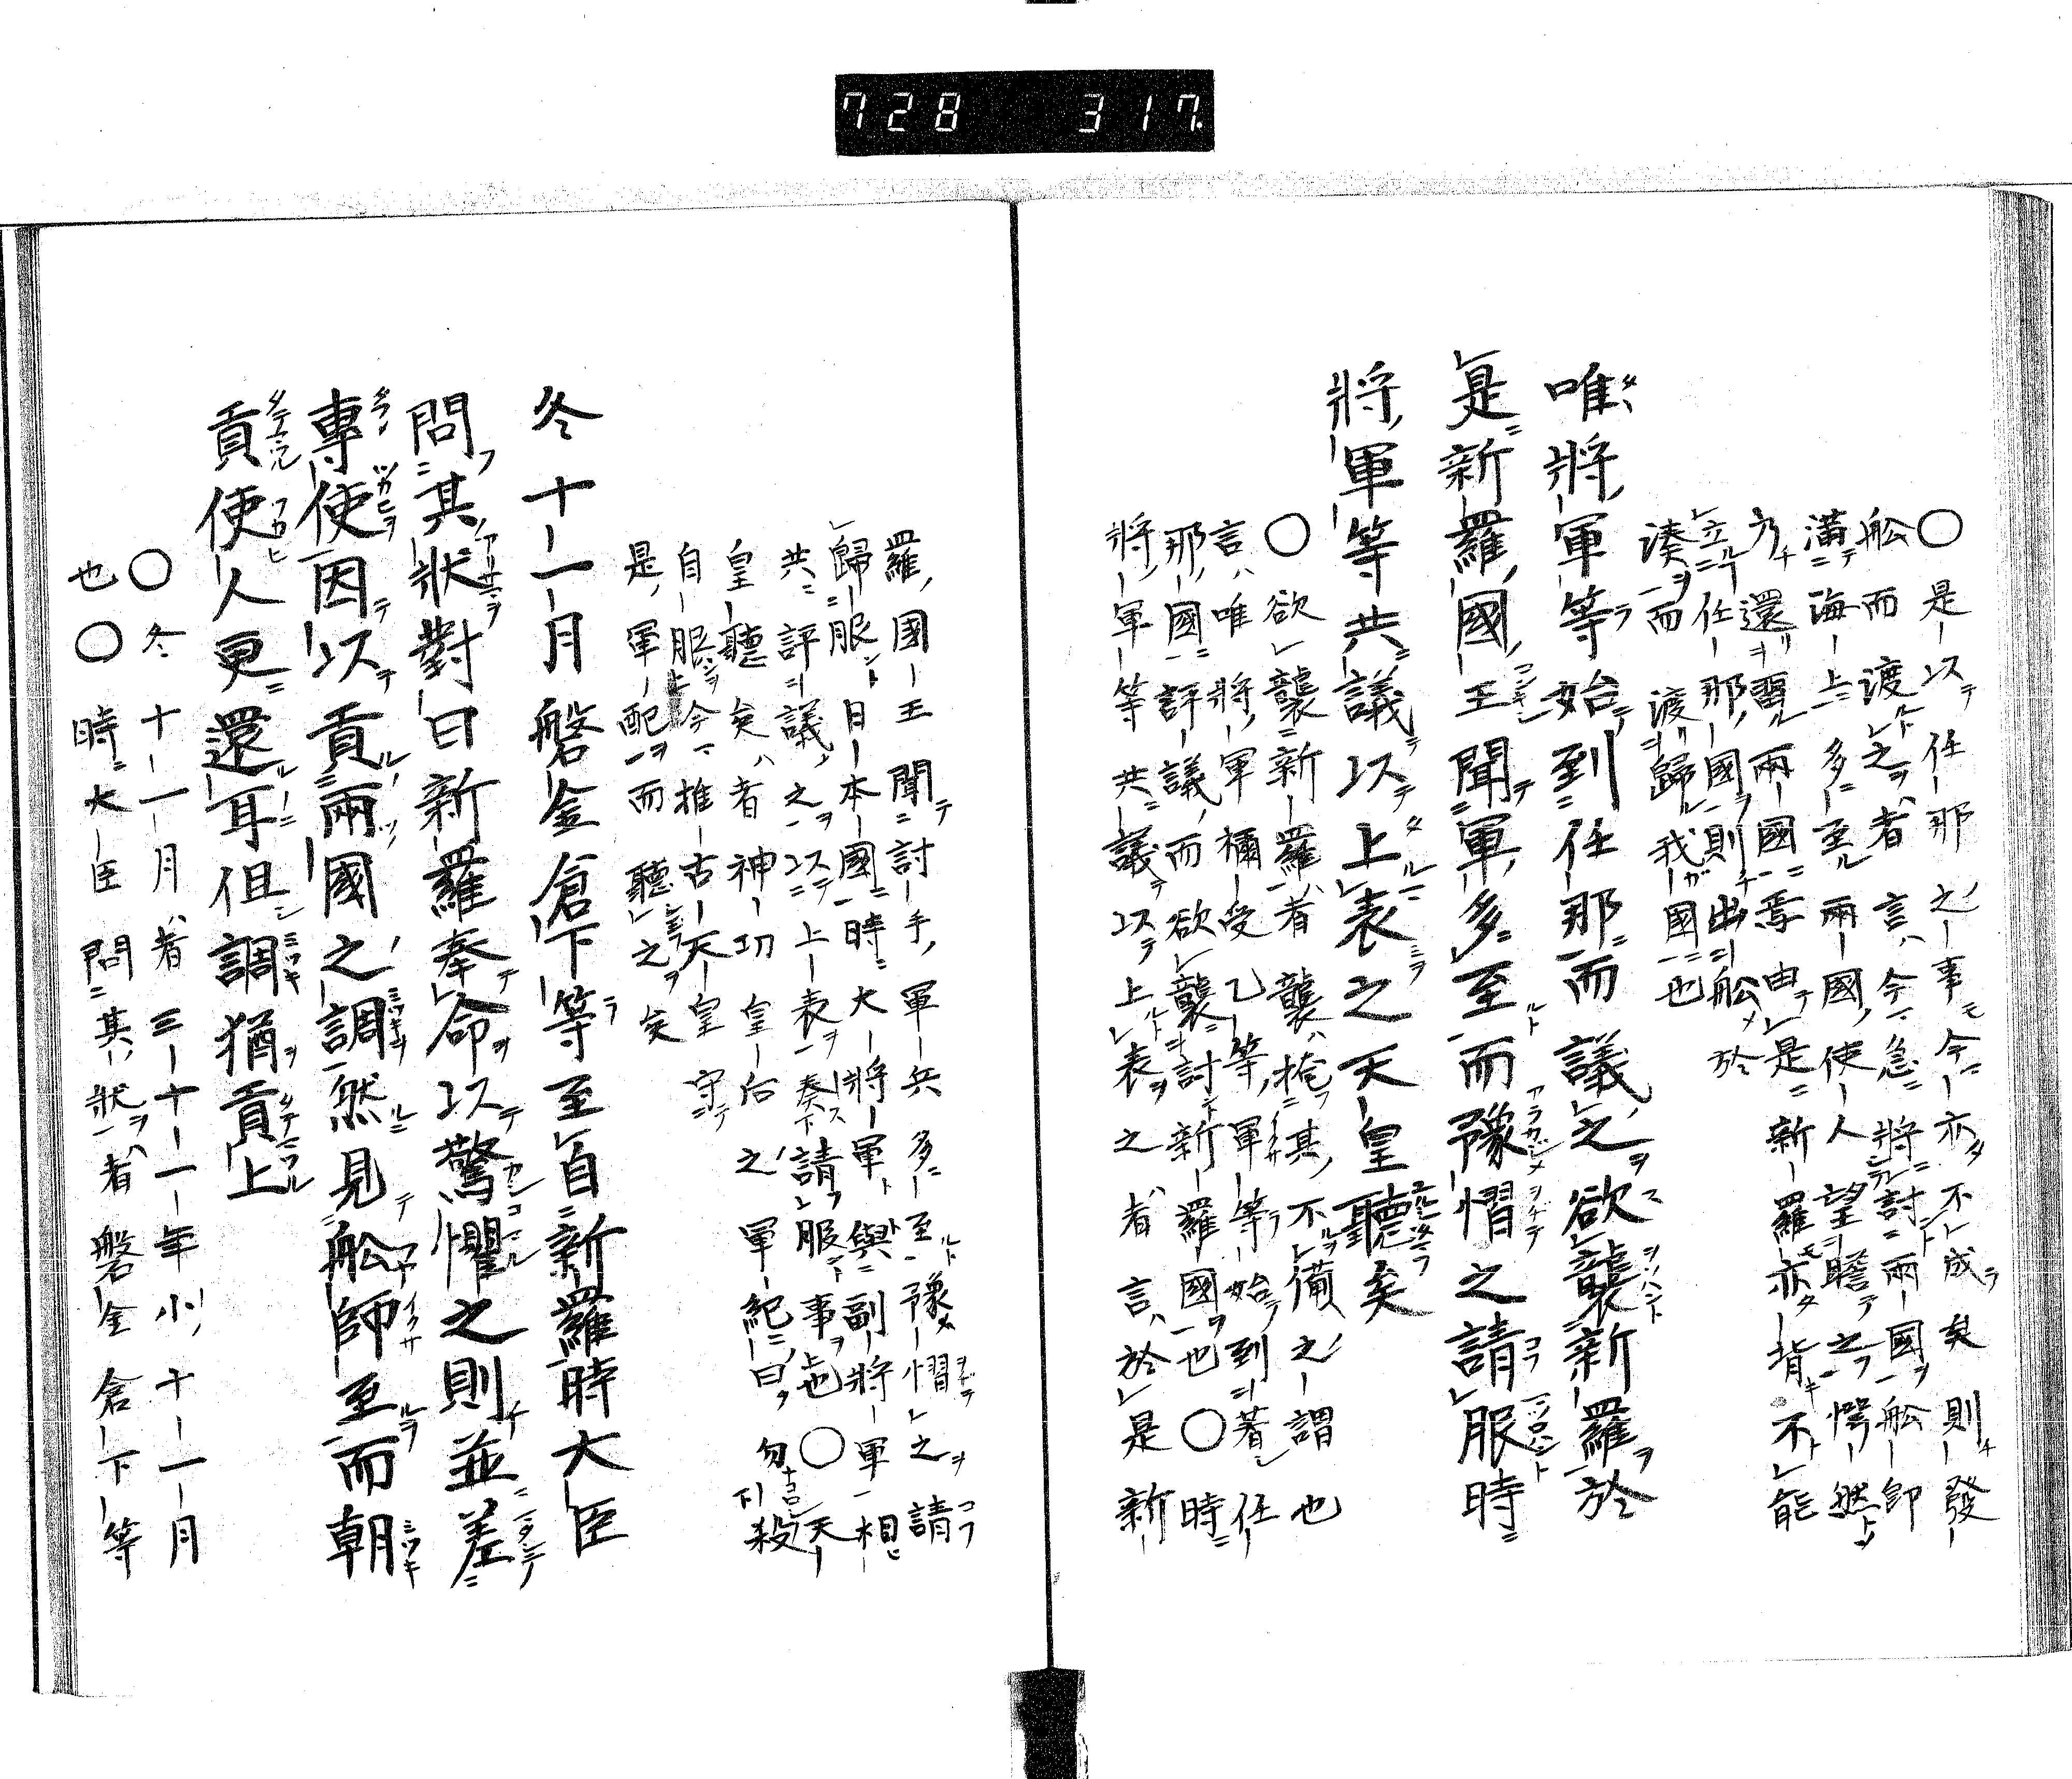 728 317.
〇是以任那之事今亦不成矣則發
舩而渡之者言今急將討兩國舩師
滿海上多至兩國使人望瞻之愕然
乃還畱兩國焉由是新羅亦背不能
立任那國則出舩於
湊而渡歸我國也
唯將軍等始到任那而議之欲襲新羅於
是新羅國王聞軍多至而豫慴之請服時
將軍等共議以上表之天皇聽矣
〇欲襲新羅者襲掩其不備之謂也
言唯將軍禰受乙等軍等始到著任
那國評議而欲襲討新羅國也〇時
將軍等共議以上表之者言於是新
羅國王聞討手軍兵多至豫慴之請
歸服日本國時大將軍與副將軍相
共評議之以上表奏請服事也〇天
皇聽矣者神功皇后之軍紀曰勿殺
自服今推古天皇守
是軍配而聽之矣
冬十一月磐金倉下等至自新羅時大臣
問其狀對曰新羅奉命以驚懼之則並差
專使因以貢兩國之調然見舩師至而朝
貢使人更還耳但調猶貢上
〇冬十一月者三十一年小十一月
也〇時大臣問其狀者磐金倉下等